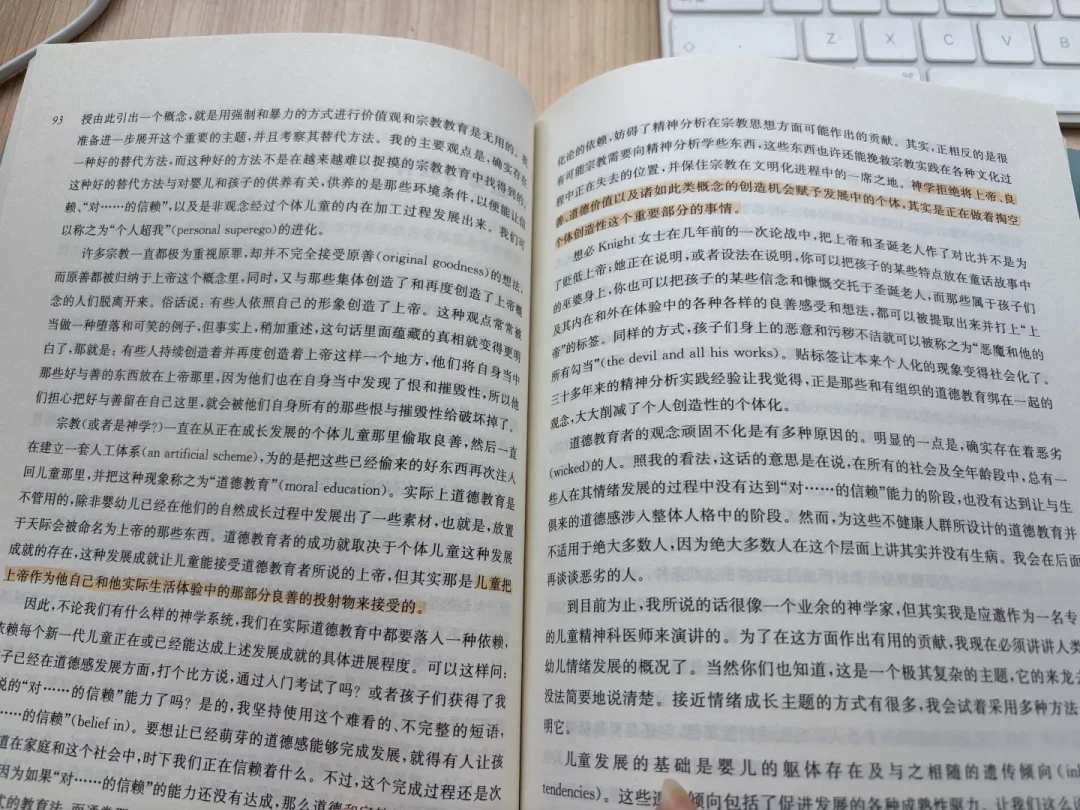 93
授由此引出一个概念,就是用强制和暴力的方式进行价值观和宗教教育是无用的。我
准备进一步展开这个重要的主题,并且考察其替代方法。我的主要观点是,确实存在
一种好的替代方法,而这种好的方法不是在越来越难以捉摸的宗教教育中找得到的。
这种好的替代方法与对婴儿和孩子的供养有关,供养的是那些环境条件,以便能让信
赖、“对……的信赖”,以及非观念经过个体儿童的内在加工过程发展出来。我们可
以称之为“个人超我”(personal superego)的进化。
许多宗教一直都极为重视原罪,却并不完全接受原善(original goodness)的想法,
而原善都被归纳于上帝这个概念里,同时,又与那些集体创造了和再度创造了上帝概
念的人们脱离开来。俗话说:有些人依照自己的形象创造了上帝。这种观点常常被
当做一种堕落和可笑的例子,但事实上,稍加重述,这句话里面蕴藏的真相就变得更明
白了,那就是:有些人持续创造着并再度创造着上帝这样一个地方,他们将自身当中
那些好与善的东西放在上帝那里,因为他们也在自身当中发现了恨和摧毁性,所以他
们担心把好与善留在自己这里,就会被他们自身所有的那些恨与摧毁性给破坏掉了。
宗教(或者是神学?)一直在从正在成长发展的个体儿童那里偷取良善,然后一直
在建立一套人工体系(an artificial scheme),为的是把这些已经偷来的好东西再次注入
回儿童那里,并把这种现象称之为“道德教育”(moral education)。实际上道德教育是
不管用的,除非婴幼儿已经在他们的自然成长过程中发展出了一些素材,也就是,放置
于天际会被命名为上帝的那些东西。道德教育者的成功就取决于个体儿童这种发展
成就的存在,这种发展成就让儿童能接受道德教育者所说的上帝,但其实那是儿童把
上帝作为他自己和他实际生活体验中的那部分良善的投射物来接受的。
因此,不论我们有什么样的神学系统,我们在实际道德教育中都要落入一种依赖,
依赖每个新一代儿童正在或已经能达成上述发展成就的具体进展程度。可以这样问:
子已经在道德感发展方面,打个比方说,通过入门考试了吗?或者孩子们获得了我
说的“对……的信赖”能力了吗?是的,我坚持使用这个难看的、不完整的短语,
……的信赖”(belief in)。要想让已经萌芽的道德感能够完成发展,就得有人让孩
道在家庭和这个社会中,时下我们正在信赖着什么。不过,这个完成过程还是次
因为如果“对……的信赖”的能力还没有达成,那么道德和宗
化论的依赖,妨碍了精神分析在宗教思想方面可能作出的贡献。其实,正相反的是很
有可能宗教需要向精神分析学些东西,这些东西也许还能挽救宗教实践在各种文化过
程中正在失去的位置,并保住宗教在文明化进程中的一席之地。神学拒绝将上帝、良
善、道德价值以及诸如此类概念的创造机会赋予发展中的个体,其实是正在做着掏空
个体创造性这个重要部分的事情。
想必 Knight 女士在几年前的一次论战中,把上帝和圣诞老人作了对比并不是为
了贬低上帝;她正在说明,或者设法在说明,你可以把孩子的某些特点放在童话故事中
的巫婆身上,你也可以把孩子的某些信念和慷慨交托于圣诞老人,而那些属于孩子们
及其内在和外在体验中的各种各样的良善感受和想法,都可以被提取出来并打上“上
帝”的标签。同样的方式,孩子们身上的恶意和污秽不洁就可以被称之为“恶魔和他的
所有勾当”(the devil and all his works)。贴标签让本来个人化的现象变得社会化了。
三十多年来的精神分析实践经验让我觉得,正是那些和有组织的道德教育绑在一起的
观念,大大削减了个人创造性的个体化。
道德教育者的观念顽固不化是有多种原因的。明显的一点是,确实存在着恶劣
(wicked)的人。照我的看法,这话的意思是在说,在所有的社会及全年龄段中,总有一
些人在其情绪发展的过程中没有达到“对……的信赖”能力的阶段,也没有达到让与生
俱来的道德感涉入整体人格中的阶段。然而,为这些不健康人群所设计的道德教育并
不适用于绝大多数人,因为绝大多数人在这个层面上讲其实并没有生病。我会在后面
再谈谈恶劣的人。
到目前为止,我所说的话很像一个业余的神学家,但其实我是应邀作为一名专
的儿童精神科医师来演讲的。为了在这方面作出有用的贡献,我现在必须讲讲人类
幼儿情绪发展的概况了。当然你们也知道,这是一个极其复杂的主题,它的来龙去
没法简要地说清楚。接近情绪成长主题的方式有很多,我会试着采用多种方法
明它。
儿童发展的基础是婴儿的躯体存在及与之相随的遗传倾向(in
tendencies)。这些遗传倾向包括了促进发展的各种成熟性驱力
Z
X
C
V
B